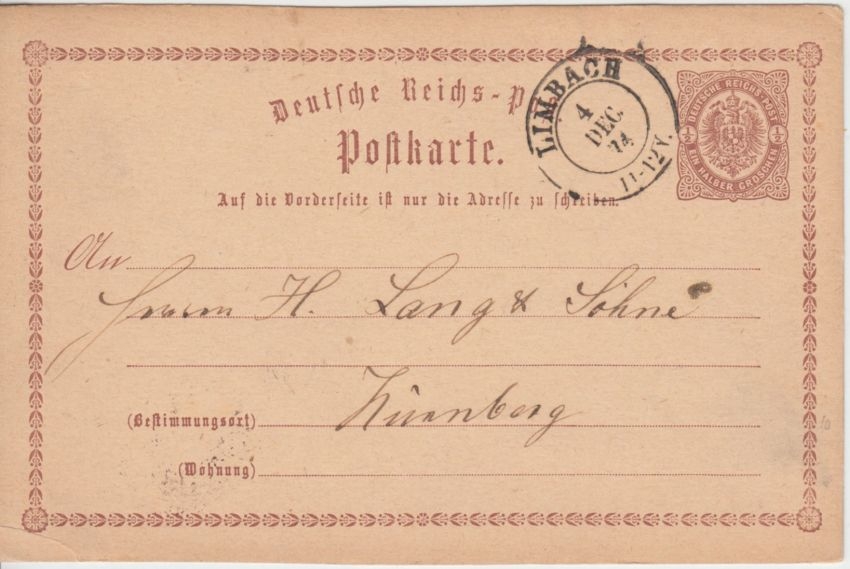 Deutsche Reichs-P
Postkarte.
Auf die Vorderseite ist nur die Adresse zu schreiben.
LIMBACH
4
DEC.
74
11-12V.
DEUTSCHE REICHS-POST
½ ½
EIN HALBER GROSCHEN
An
Herrn H. Lang & Söhne
Nürnberg
(Bestimmungsort)
(Wohnung)